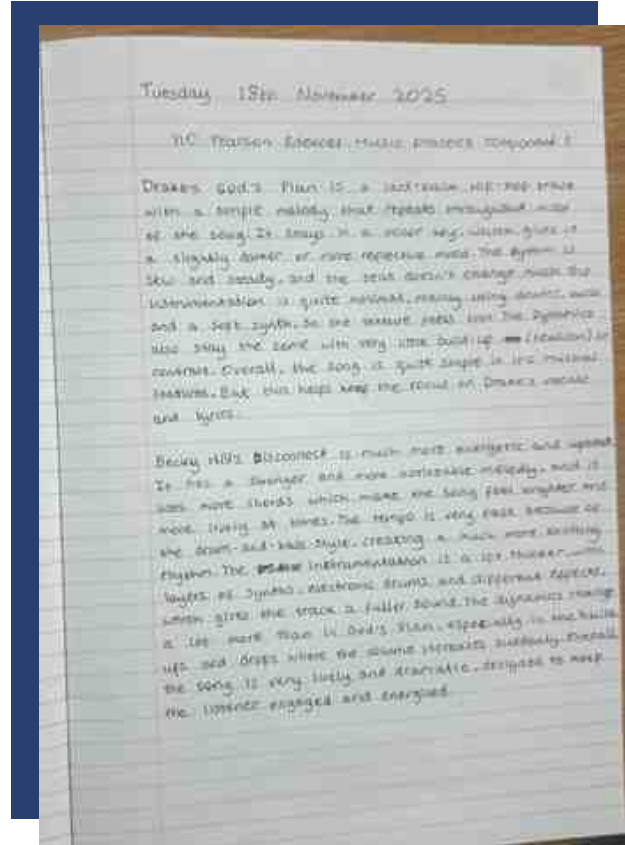 Tuesday 18th November 2025
Y10 Pearson Edexcel Music practice component 1
Drakes God's Plan is a laid-back hip-hop track
with a simple melody that repeats throughout most
of the song. It stays in a minor key, which gives it
a slightly darker or more reflective mood. The rhythm is
slow and steady, and the beat doesn't change much. The
instrumentation is quite minimal, mainly using drums, bass
and a soft synth, so the texture feels thin. The Dynamics
also stay the same with very little build-up (tension) or
contrast. Overall, the song is quite simple in its musical
features. But this helps keep the focus on Drake's vocals
and lyrics.
Becky Hill's Disconnect is much more energetic and upbeat.
It has a stronger and more noticeable melody, and it
uses more chords which make the song feel brighter and
more lively at times. The tempo is very fast because of
the drum-and-bass style, creating a much more exciting
rhythm. The instrumentation is a lot thicker, with
layers of synths, electronic drums, and different effects,
which gives the track a fuller sound. The dynamics change
a lot more than in God's Plan, especially in the build
ups and drops where the volume increases suddenly. Overall
the song is very lively and dramatic, designed to keep
the listener engaged and energised.